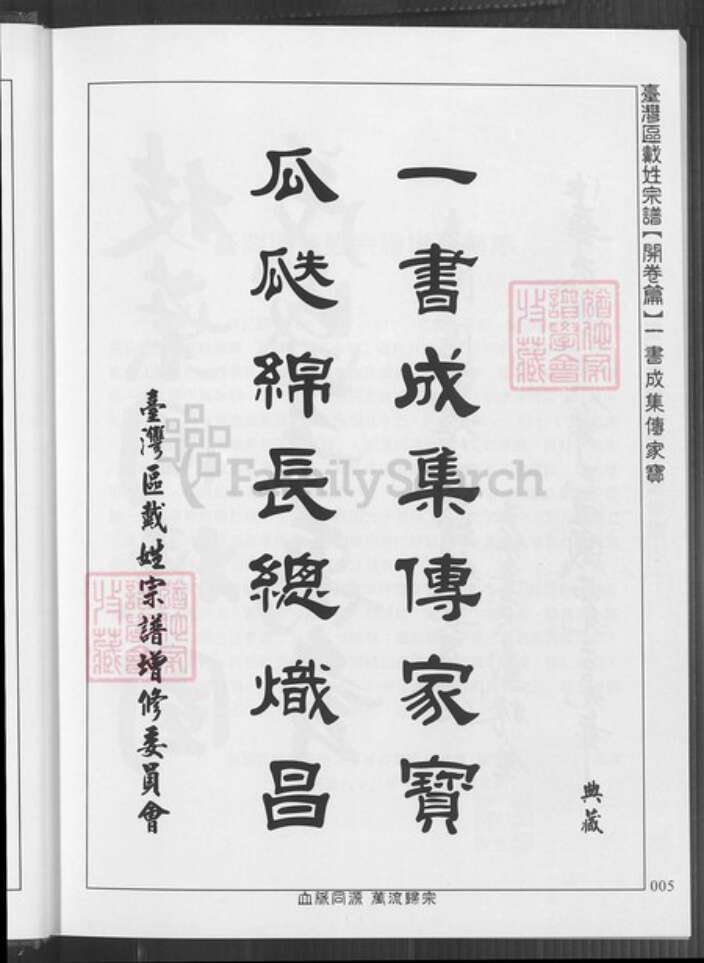 臺灣區戴姓宗譜【開卷篇】一書成集傳家寶
典藏
一書成集傳家寶
瓜瓞綿長總熾昌
臺灣區戴姓宗譜增修委員會
血脈同源 萬流歸宗
005
FamilySearch
譜學會
收藏